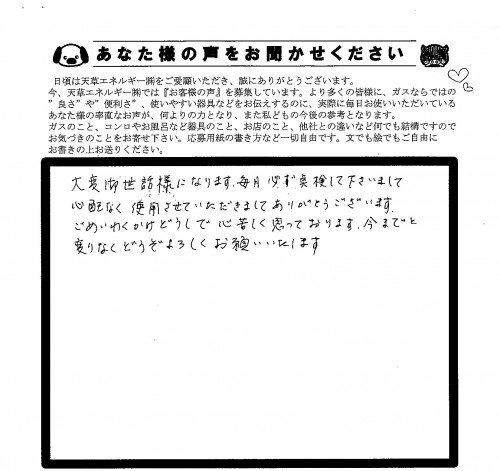 あなた様の声をお聞かせください
日頃は天草エネルギー㈱をご愛顧いただき、誠にありがとうございます。
今、天草エネルギー㈱では『お客様の声』を募集しています。より多くの皆様に、ガスならではの
”良さ”や”便利さ”、使いやすい器具などをお伝えするのに、実際に毎日お使いいただいている
あなた様の率直なお声が、何よりの力となり、また私どもの今後の参考となります。
ガスのこと、コンロやお風呂など器具のこと、お店のこと、他社との違いなど何でも結構ですので
お気づきのことをお寄せ下さい。応募用紙の書き方など一切自由です。文でも絵でもご自由に
お書きの上お送りください。
大変御世話様になります、毎月必ず点検して下さいまして
心配なく使用させていただきましてありがとうございます、
ごめいわくかけどうしで心苦しく思っております、今までと
変りなくどうぞよろしくお願いいたします